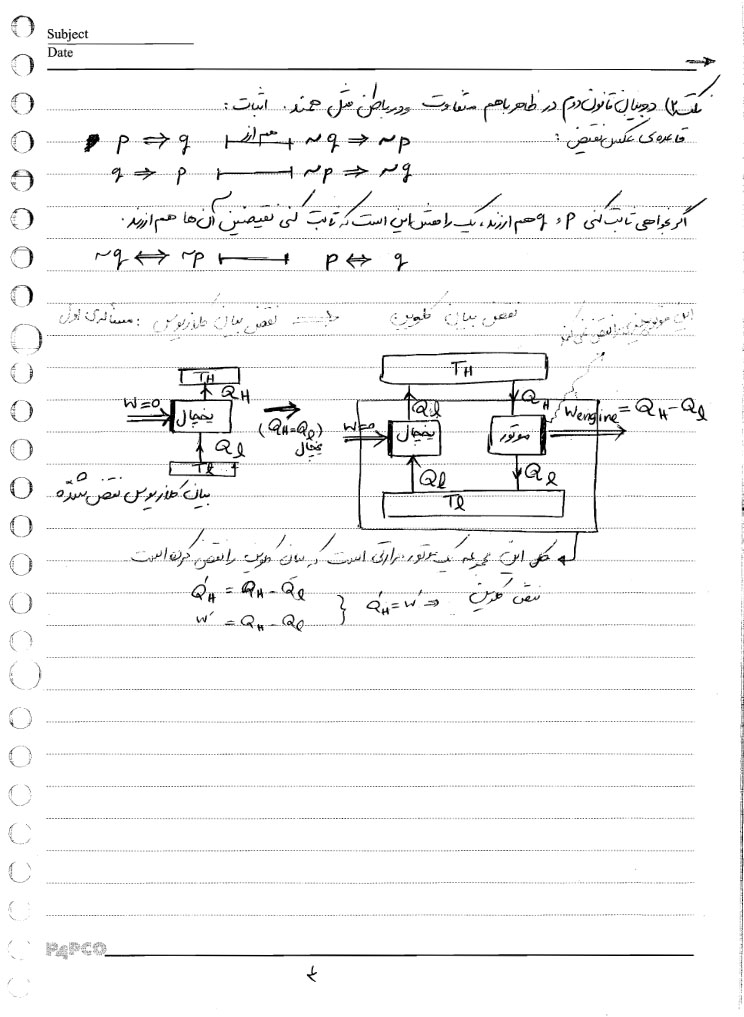 Subject
Date
نکته ۲) دو بیان قانون دوم در ظاهر باهم متفاوت و در باطن مثل همند. اثبات:
قاعده‌ی عکس نقیض:
p ⇒ q هم ارز ~q ⇒ ~p
q ⇒ p ~p ⇒ ~q
اگر بخواهی ثابت کنی p و q هم ارزند، یک راهش این است که ثابت کنی نقیضین آن‌ها هم ارزند.
~q ⇔ ~p p ⇔ q
مسأله‌ی اول: نقض بیان کلازیوس نقض بیان کلوین
این موتور چیزی را نقض نمی‌کند
TH
QH
W=0
یخچال
Ql
Tl
بیان کلازیوس نقض شده
(QH=Ql)
یخچال
TH
Ql
QH
W=0
یخچال
موتور
Wengine = QH-Ql
Ql
Ql
Tl
کل این مجموعه یک موتور حرارتی است که بیان کلوین را نقض کرده است
Q'H = QH - Ql
W' = QH - Ql
} Q'H = W' ⇒ نقض کلوین
PAPCO